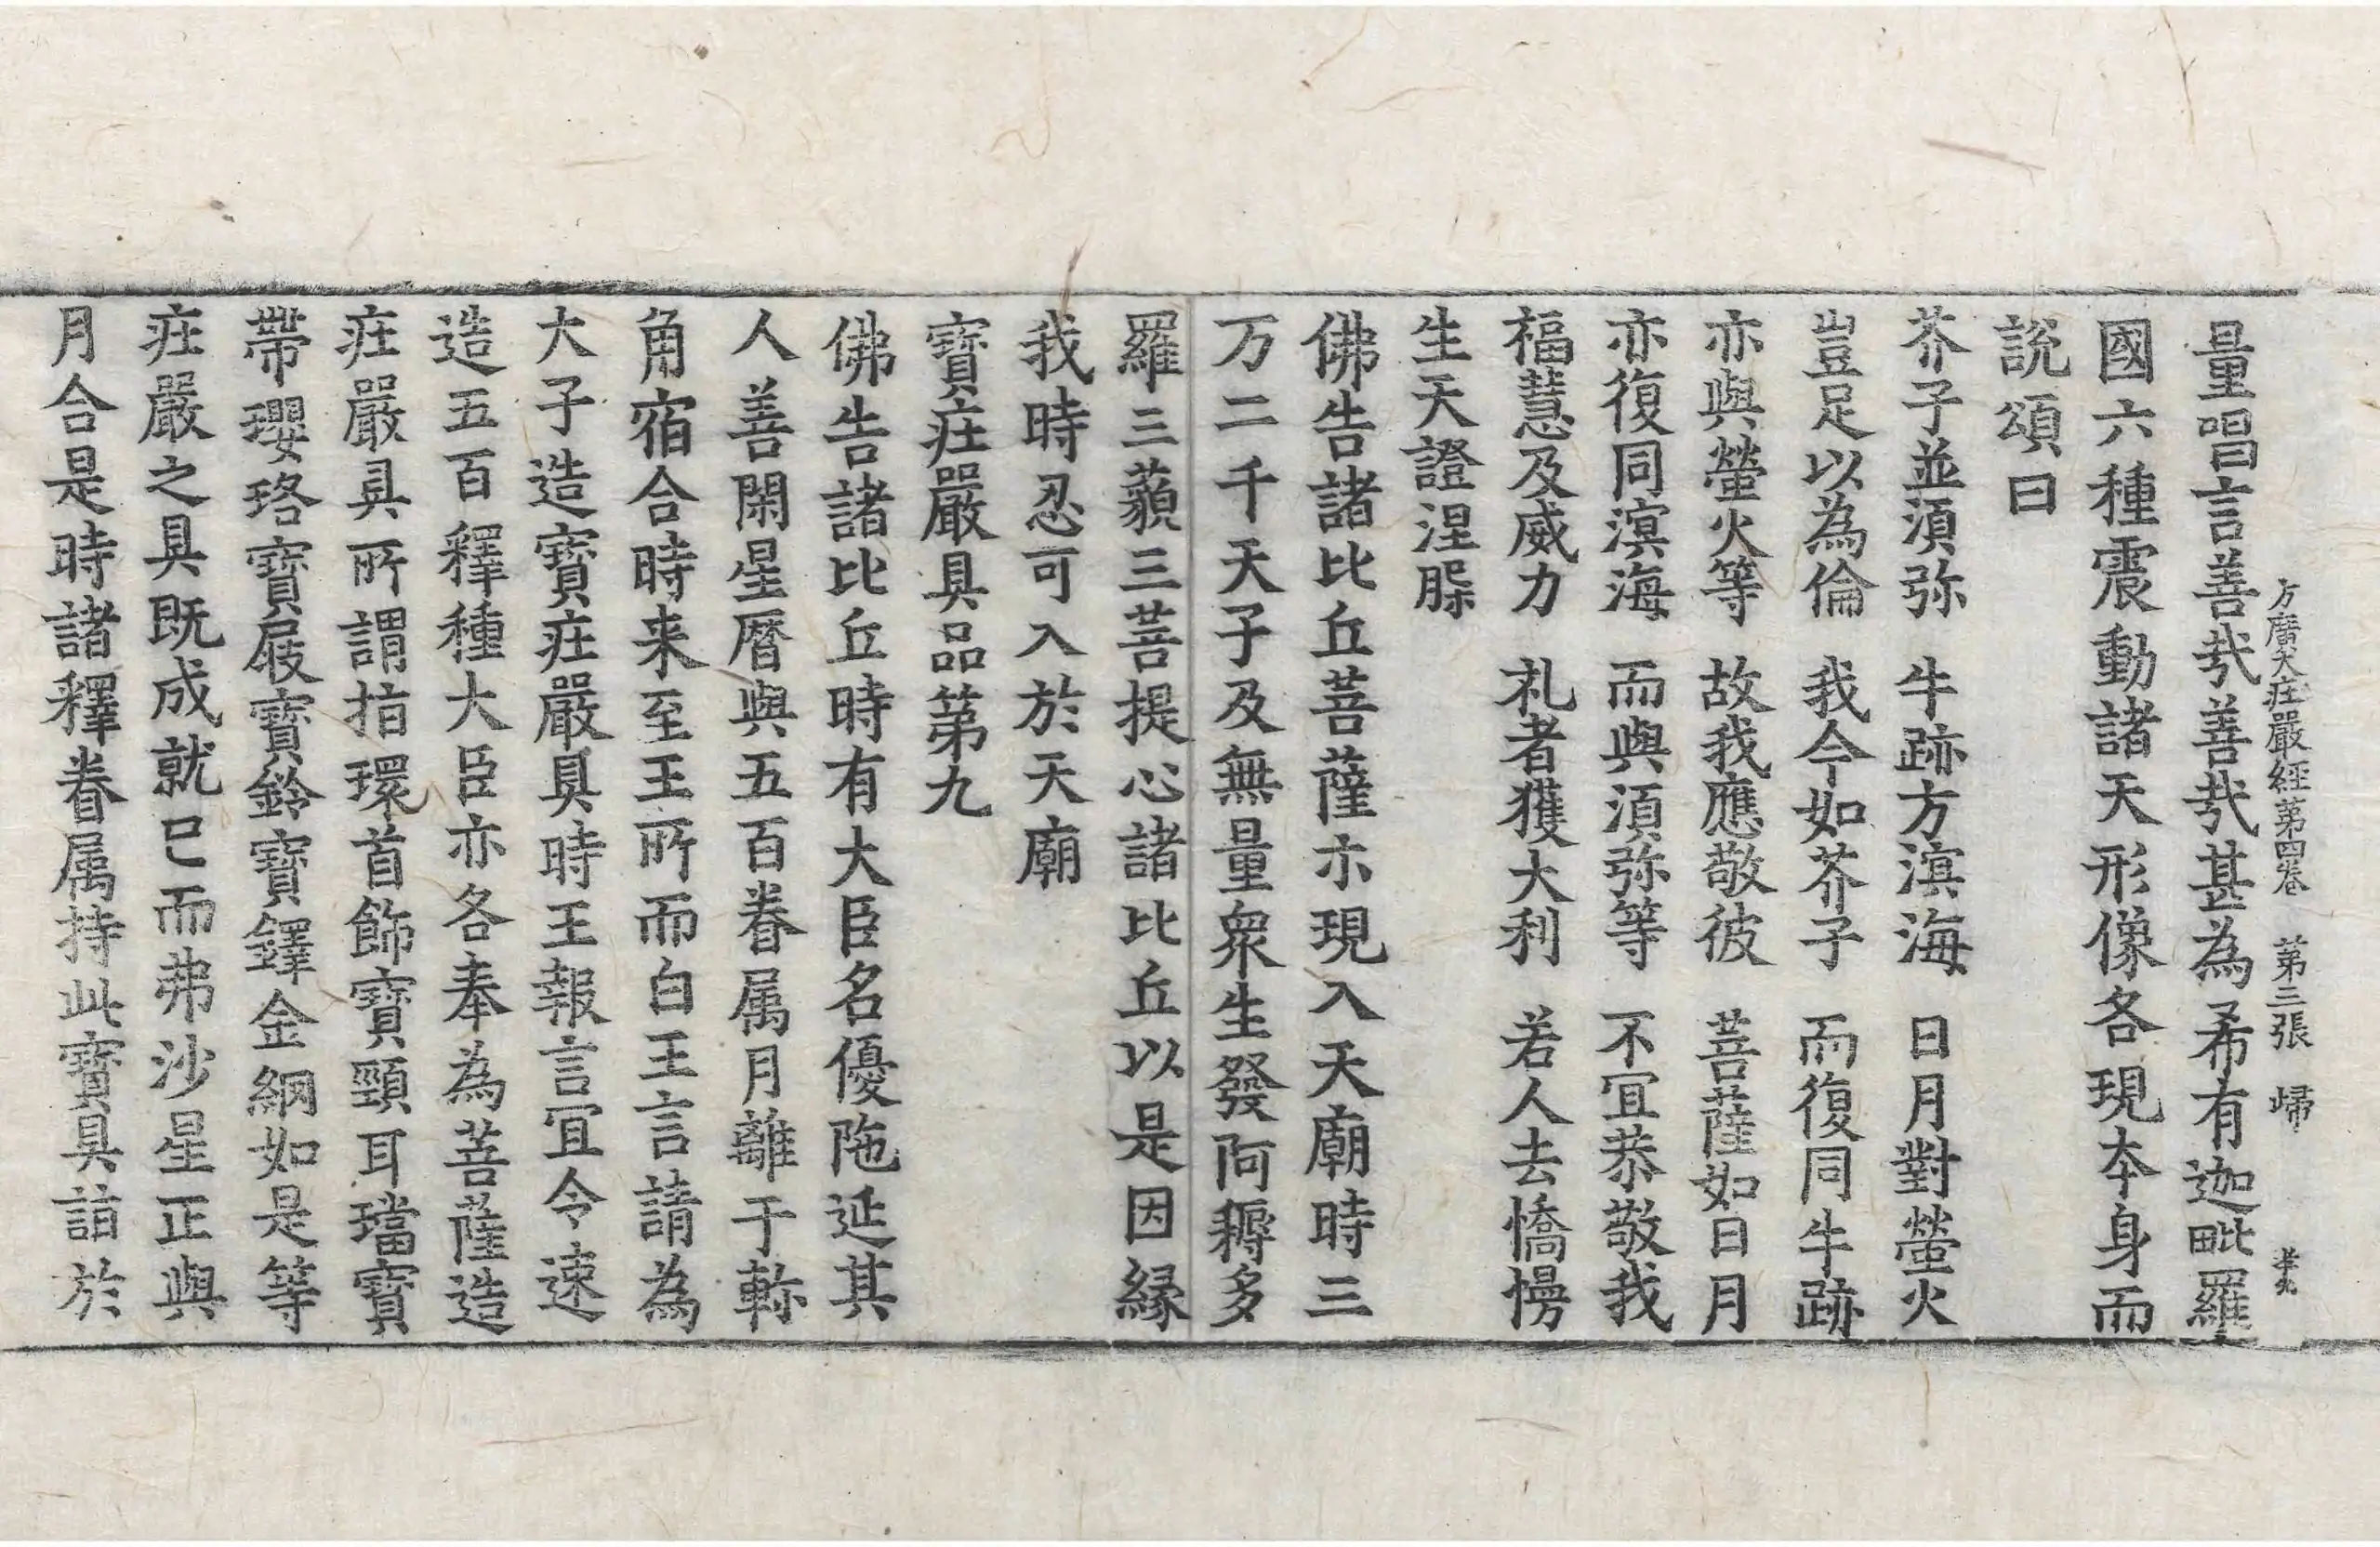 方廣大莊嚴經第四卷 第三張 歸
量唱言善㢤善㢤甚為希有迦毗羅
國六種震動諸天形像各現夲身而
說頌曰
芥子並湏弥 牛跡方溟海 日月對螢火
豈足以為倫 我今如芥子 而復同牛跡
亦與螢火等 故我應敬彼 菩薩如日月
亦復同溟海 而與湏弥等 不冝恭敬我
福慧及威力 礼者獲大利 若人去憍慢
生天證涅槃
佛告諸比丘菩薩示現入天廟時三
万二千天子及無量衆生發阿耨多
羅三藐三菩提心諸比丘以是因緣
我時忍可入於天廟
寶莊嚴具品第九
佛告諸比丘時有大臣名優陁延其
人善閑星曆與五百眷属月離于軫
角宿合時来至王所而白王言請為
大子造寶莊嚴具時王報言冝令速
造五百釋種大臣亦各奉為菩薩造
莊嚴具所謂指環首飾寶頸耳璫寶
帶瓔珞寶屐寶鈴寶鐸金網如是等
莊嚴之具既成就已而弗沙星正與
月合是時諸釋眷属持此寶具詣於